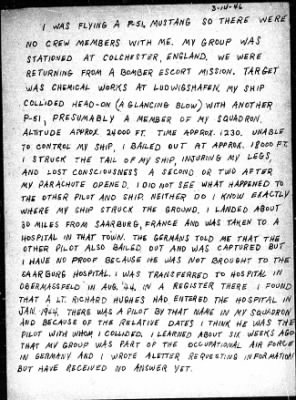 3-14-46
I WAS FLYING A P-51, MUSTANG SO THERE WERE
NO CREW MEMBERS WITH ME. MY GROUP WAS
STATIONED AT COLCHESTER, ENGLAND. WE WERE
RETURNING FROM A BOMBER ESCORT MISSION. TARGET
WAS CHEMICAL WORKS AT LUDWIGSHAFEN. MY SHIP
COLLIDED HEAD-ON (A GLANCING BLOW) WITH ANOTHER
P-51, PRESUMABLY A MEMBER OF MY SQUADRON.
ALTITUDE APPROX. 24000 FT. TIME APPROX. 1230. UNABLE
TO CONTROL MY SHIP, I BAILED OUT AT APPROX. 18000 FT.
I STRUCK THE TAIL OF MY SHIP, INJURING MY LEGS,
AND LOST CONSCIOUSNESS A SECOND OR TWO AFTER
MY PARACHUTE OPENED. I DID NOT SEE WHAT HAPPENED TO
THE OTHER PILOT AND SHIP. NEITHER DO I KNOW EXACTLY
WHERE MY SHIP STRUCK THE GROUND. I LANDED ABOUT
30 MILES FROM SAARBURG, FRANCE AND WAS TAKEN TO A
HOSPITAL IN THAT TOWN. THE GERMANS TOLD ME THAT THE
OTHER PILOT ALSO BAILED OUT AND WAS CAPTURED BUT
I HAVE NO PROOF BECAUSE HE WAS NOT BROUGHT TO THE
SAARBURG HOSPITAL. I WAS TRANSFERRED TO HOSPITAL IN
OBERMASSFELD IN AUG. '44. IN A REGISTER THERE I FOUND
THAT A LT. RICHARD HUGHES HAD ENTERED THE HOSPITAL IN
JAN. 1944. THERE WAS A PILOT BY THAT NAME IN MY SQUADRON
AND BECAUSE OF THE RELATIVE DATES I THINK HE WAS THE
PILOT WITH WHOM I COLLIDED. I LEARNED ABOUT SIX WEEKS AGO
THAT MY GROUP WAS PART OF THE OCCUPATIONAL AIR FORCE
IN GERMANY AND I WROTE A LETTER REQUESTING INFORMATION
BUT HAVE RECEIVED NO ANSWER YET.